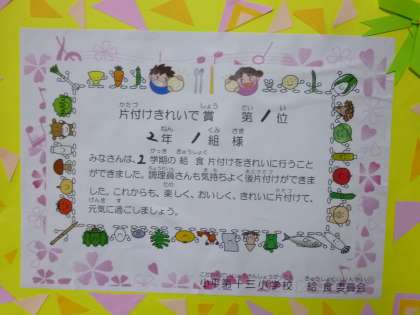 片付けきれいで賞　第1位
2年　1組　様
みなさんは、2学期の給食片付けをきれいに行うこと
ができました。調理員さんも気持ちよく後片付けができま
した。これからも、楽しく、おいしく、きれいに片付けて、
元気に過ごしましょう。
小平第十三小学校　給食委員会